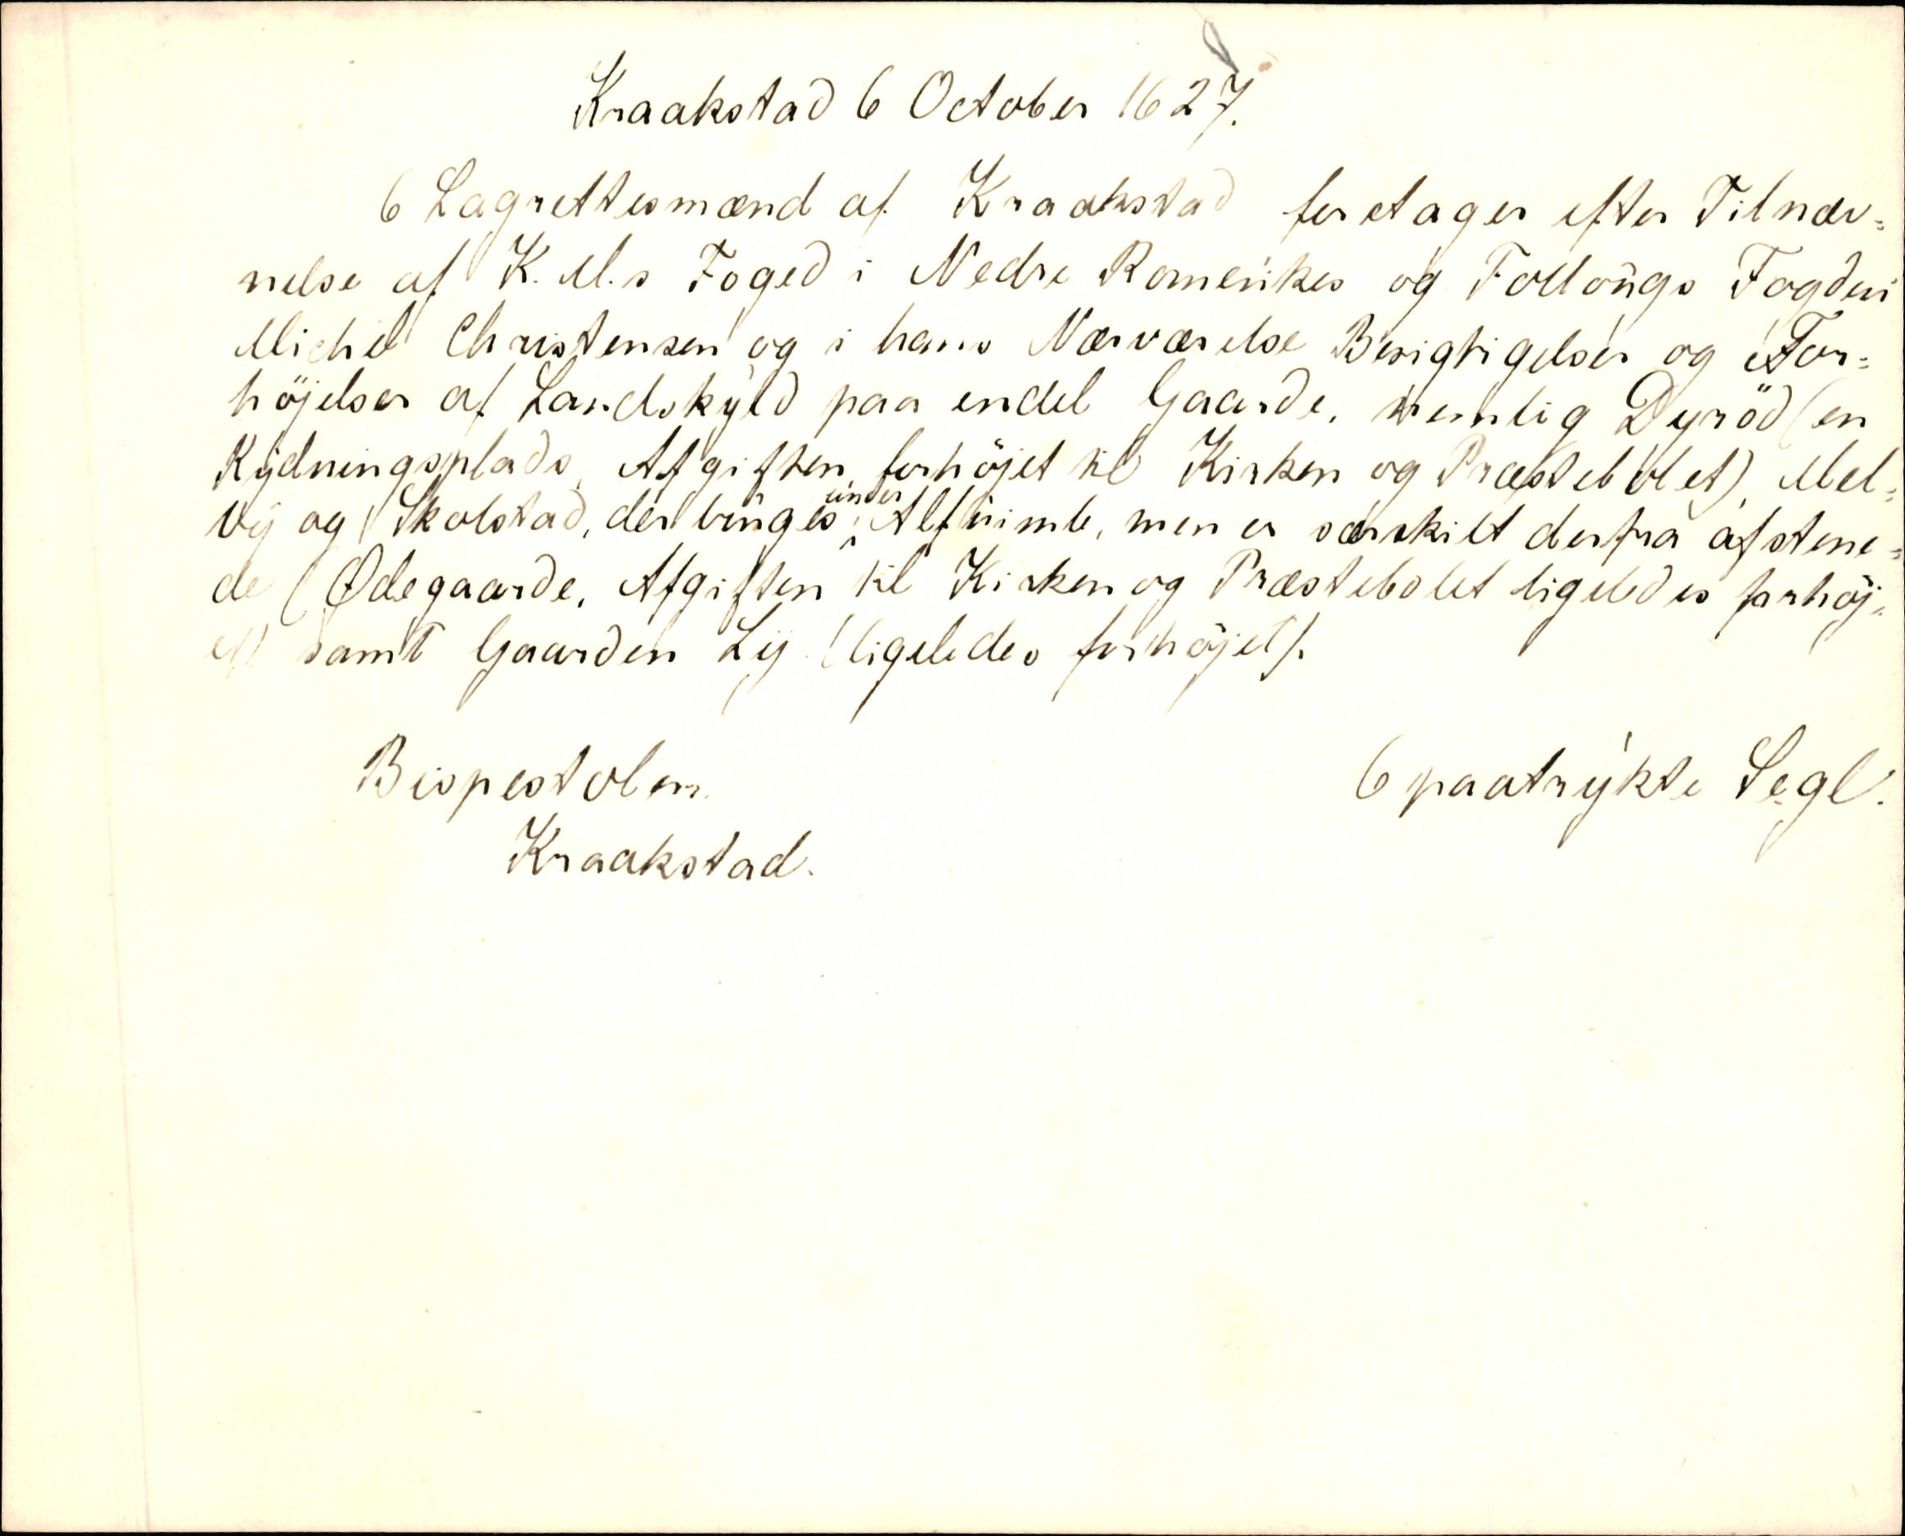 Kraakstad 6 October 1627.
6 Lagrettesmænd af Kraakstad foretager efter Tilnæv-
nelse af K. M.s Foged i Nedre Romerikes og Follougs Fogderi
Michel Christensen og i hans Nærværelse Besigtigelser og For-
höjelser af Landskyld paa endel Gaarde, nemlig Dyröd (en
Rydningsplads, Afgiften forhöjet til Kirken og Præstebolet), Mel-
by og Skolstad, der buges under Alfuimb, men er særskilt derfra afstene-
de (Ødegaarde, Afgiften til Kirken og Præstebolet ligeledes forhöj-
et) samt Gaarden Ly (ligeledes forhöjet).
Bispestolen
6 paatrykte Segl.
Kraakstad.